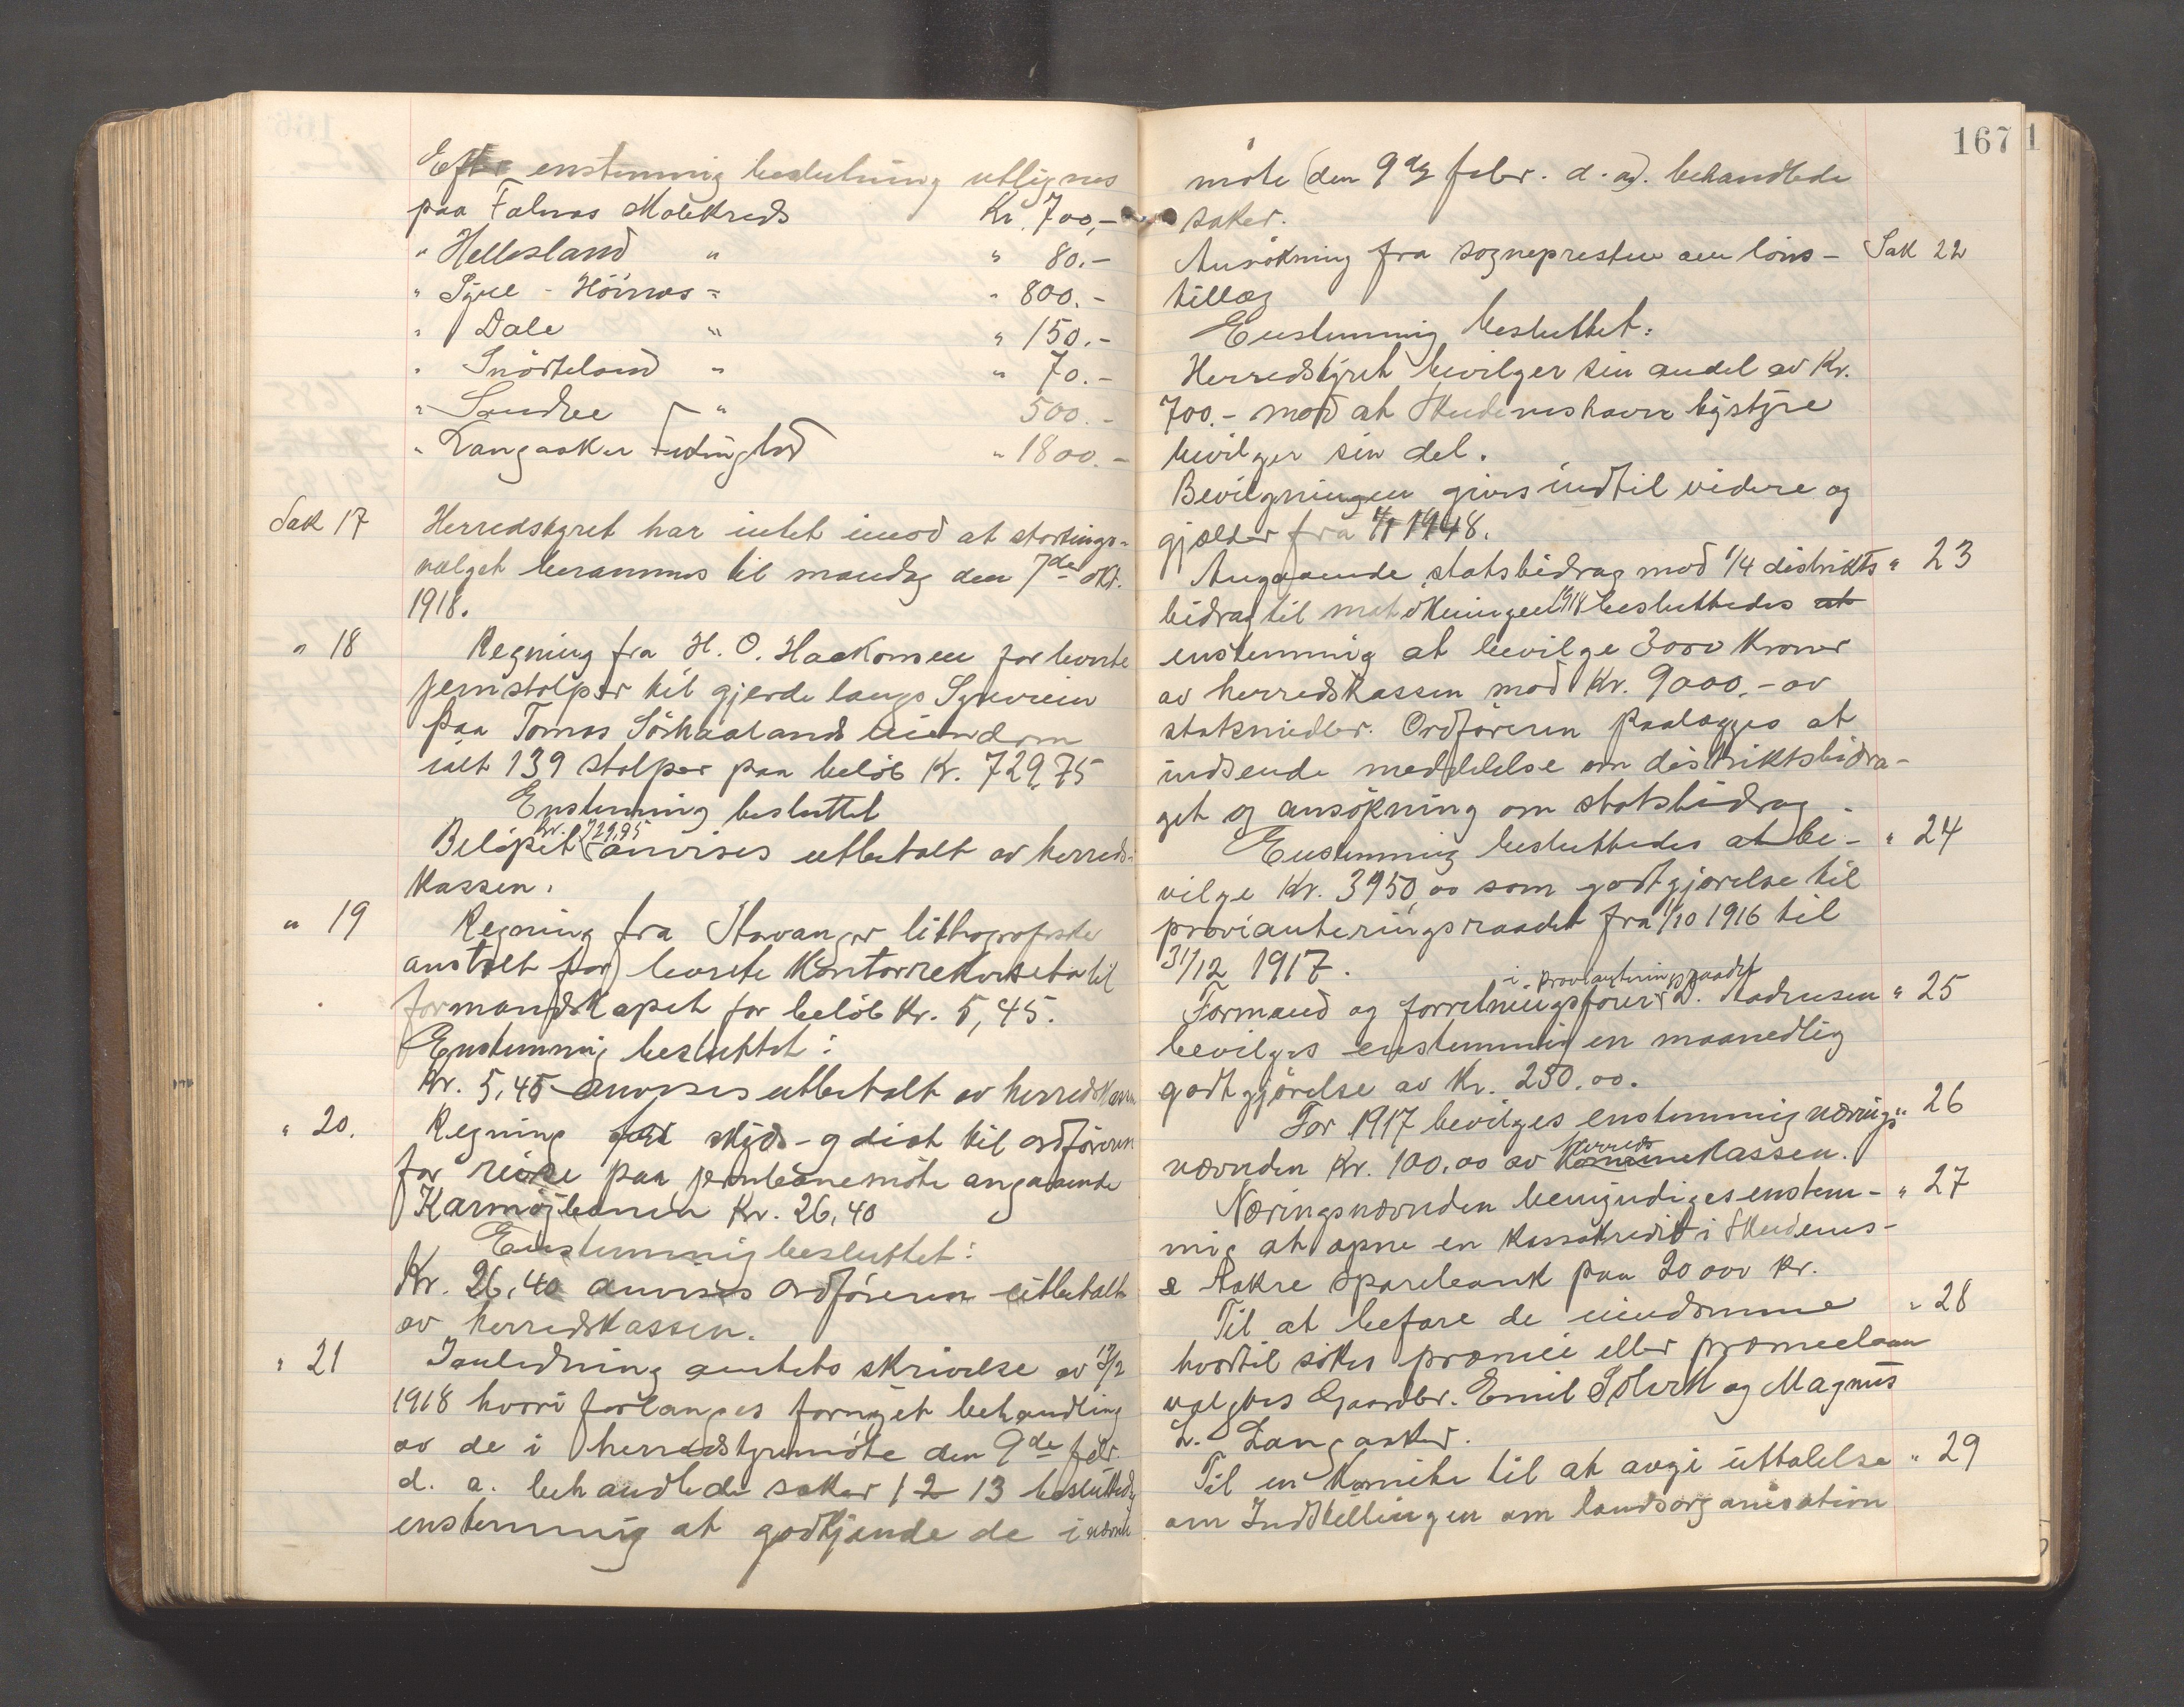 Efter enstemmig beslutning utlignes
paa Falnæs Skolekreds Kr. 700,-
" Hellesland " " 80.-
" Syre - Höinæs " " 800.-
" Dale " " 150.-
" Snörteland " " 70.-
" Sandve " 500.-
" Langaaker " 1800.-
Sak 17 Herredstyret har intet imod at stortings-
valget berammes til mandag den 7de okt.
1918.
" 18 Regning fra H. O. Haakonsen for leverte
jernstolper til gjerde langs Syreveien
paa Tomas Sörhaalands eiendom
ialt 139 stolper paa belöb Kr. 729,75
Enstemmig besluttet
Belöpet Kr. 729,95 anvises utbetalt av herreds-
kassen.
" 19 Regning fra Stavanger lithografiske
anstalt for leverte kontorrekvisita til
formandskapet for belöb Kr. 5,45.
Enstemmig besluttet:
Kr. 5,45 anvises utbetalt av herredskassen
" 20. Regning skyds- og diæt til ordföreren
for reise paa jernbanemöte angaaende
Karmöjbanen Kr. 26,40
Enstemmig besluttet:
Kr. 26,40 anvises ordföreren utbetalt
av herredskassen.
" 21 I anledning amtets skrivelse av 12/2
1918 hvori forlanges fornyet behandling
av de i herredstyremöte den 9de febr.
d. a. behandlede saker 12 13 besluttedes
enstemmig at godkjende de i nævnte
167 1
möte (den 9de febr. d. a). behandlede
saker.
Ansökning fra sognepresten om löns- Sak 22
tillæg
Enstemmig besluttet:
Herredstyret bevilger sin andel av Kr.
700.- mod at Skudeneshavn bystyre
bevilger sin del.
Bevilgningen gives indtil videre og
gjælder fra 1/1 1918.
Angaaende statsbidrag mod 1/4 distrikts " 23
bidrag til matökningen 1918 besluttedes at
enstemmig at bevilge 3000 kroner
av herredskassen mod Kr. 9000.- av
statsmidler. Ordföreren paalægges at
indsende meddelelse om distriktsbidra-
get og ansökning om statsbidrag.
Enstemmig besluttedes at be- " 24
vilge Kr. 3950,00 som godtgjörelse til
provianteringsraadet fra 1/10 1916 til
31/12 1917.
i provianteringsraadet
Formand og forretningsförer Andreasen " 25
bevilges enstemmig en maanedlig
godtgjörelse av Kr. 250.00.
For 1917 bevilges enstemmig nærings- " 26
nævnden Kr. 100,00 av kommune herredskassen.
Næringsnævnden bemyndiges enstem- " 27
mig at åpne en kassakredit i Skudenes-
& Aakre sparebank paa 20 000 kr.
Til at befare de eiendomme " 28
hvortil sökes præmie eller præmielaan
valgtes Gaardbr. Emil Stölvik og Magnus
L. Langaaker.
Til en komite til at avgi uttalelse " 29
om Indstillingen om landsorganisation